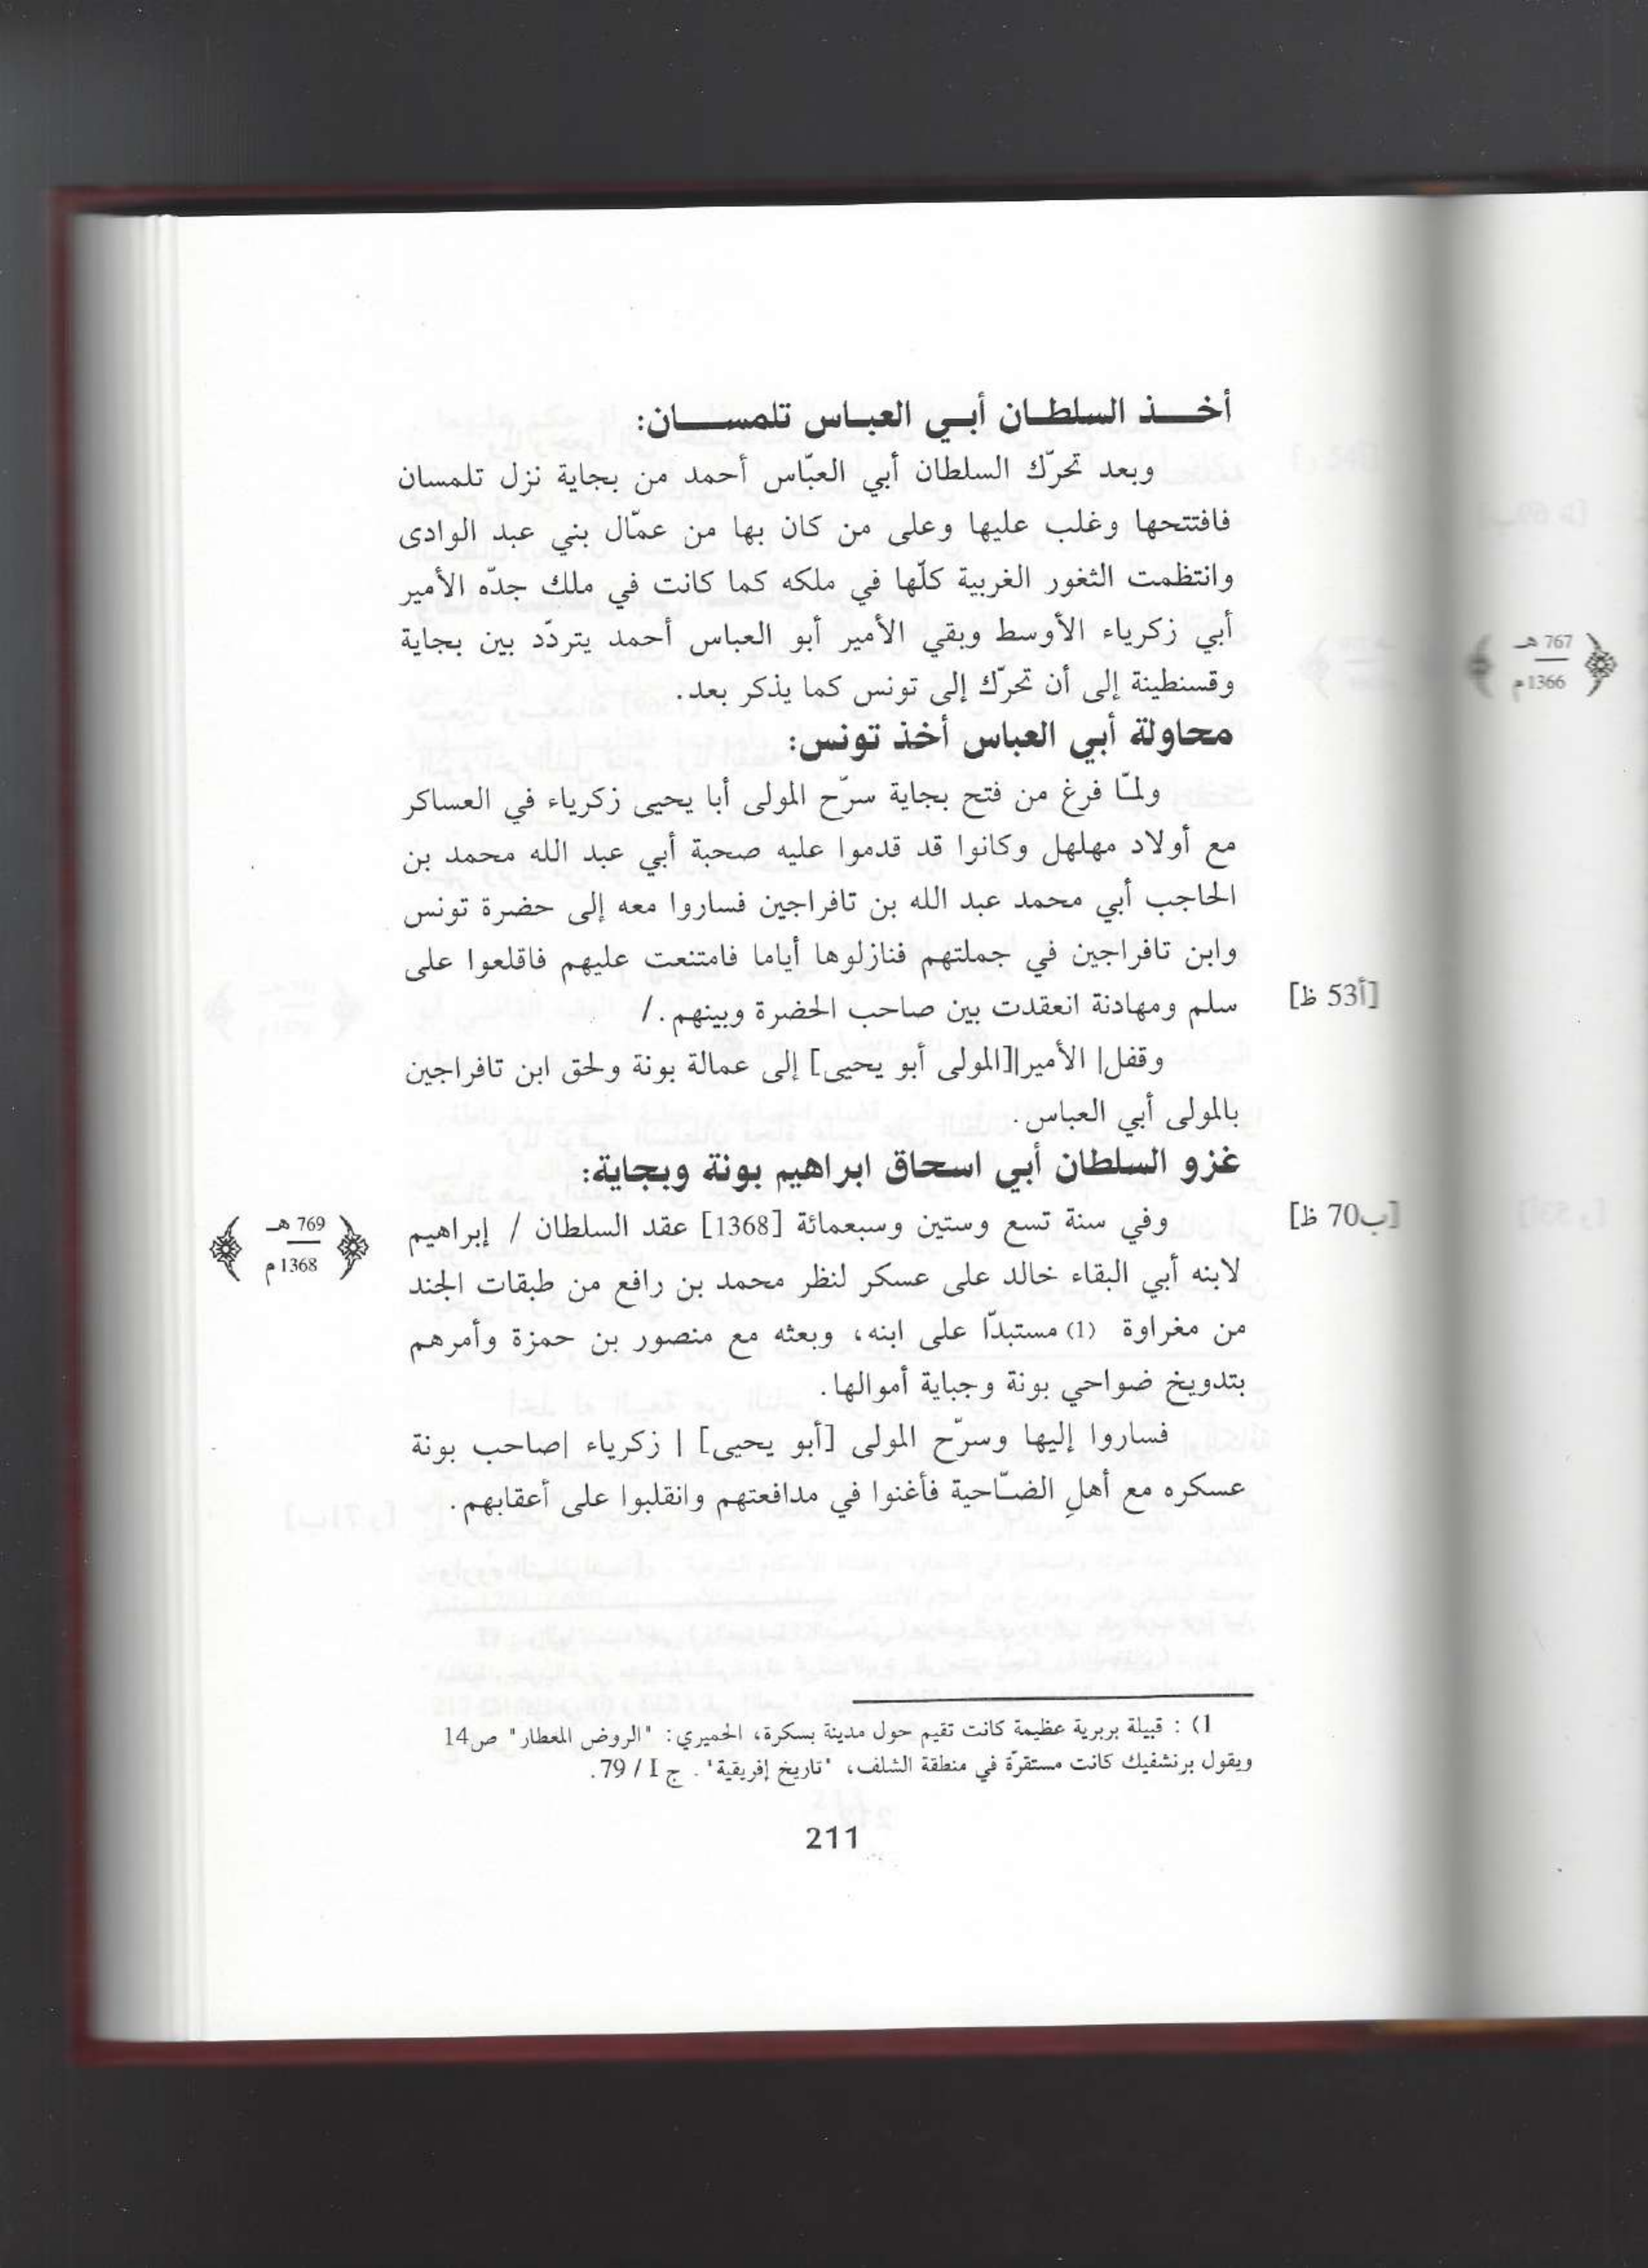 أخـــذ السلطـان أبـي العبـاس تلمســـان:
وبعد تحرّك السلطان أبي العبّاس أحمد من بجاية نزل تلمسان
فافتتحها وغلب عليها وعلى من كان بها من عمّال بني عبد الوادى
وانتظمت الثغور الغربية كلّها في ملكه كما كانت في ملك جدّه الأمير
أبي زكرياء الأوسط وبقي الأمير أبو العباس أحمد يتردّد بين بجاية
وقسنطينة إلى أن تحرّك إلى تونس كما يذكر بعد.
محاولة أبي العباس أخذ تونس:
ولمّا فرغ من فتح بجاية سرّح المولى أبا يحيى زكرياء في العساكر
مع أولاد مهلهل وكانوا قد قدموا عليه صحبة أبي عبد الله محمد بن
الحاجب أبي محمد عبد الله بن تافراجين فساروا معه إلى حضرة تونس
وابن تافراجين في جملتهم فنازلوها أياما فامتنعت عليهم فاقلعوا على
سلم ومهادنة انعقدت بين صاحب الحضرة وبينهم. /
[أ53 ظ]
وقفل| الأمير|[المولى أبو يحيى] إلى عمالة بونة ولحق ابن تافراجين
بالمولى أبي العباس.
غزو السلطان أبي اسحاق ابراهيم بونة وبجاية:
وفي سنة تسع وستين وسبعمائة [1368] عقد السلطان / إبراهيم
[ب70 ظ]
769 هـ
1368 م
لابنه أبي البقاء خالد على عسكر لنظر محمد بن رافع من طبقات الجند
من مغراوة (1) مستبدّا على ابنه، وبعثه مع منصور بن حمزة وأمرهم
بتدويخ ضواحي بونة وجباية أموالها.
فساروا إليها وسرّح المولى [أبو يحيى] | زكرياء |صاحب بونة
عسكره مع أهلِ الضّاحية فأغنوا في مدافعتهم وانقلبوا على أعقابهم.
1) : قبيلة بربرية عظيمة كانت تقيم حول مدينة بسكرة، الحميري: "الروض المعطار" ص14
ويقول برنشفيك كانت مستقرّة في منطقة الشلف، "تاريخ إفريقية". ج I / 79.
211
767 هـ
1366 م